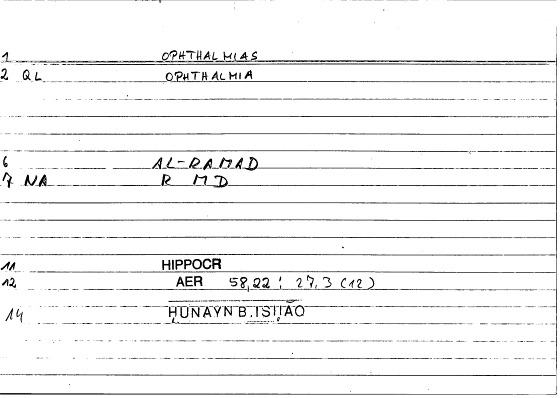 1 OPHTHALMIAS
2 QL OPHTHALMIA
6 AL-RAMAD
7 NA R M D
11 HIPPOCR
12 AER 58,22 : 27,3 (12)
14 ḤUNAYN B.ISḤĀQ